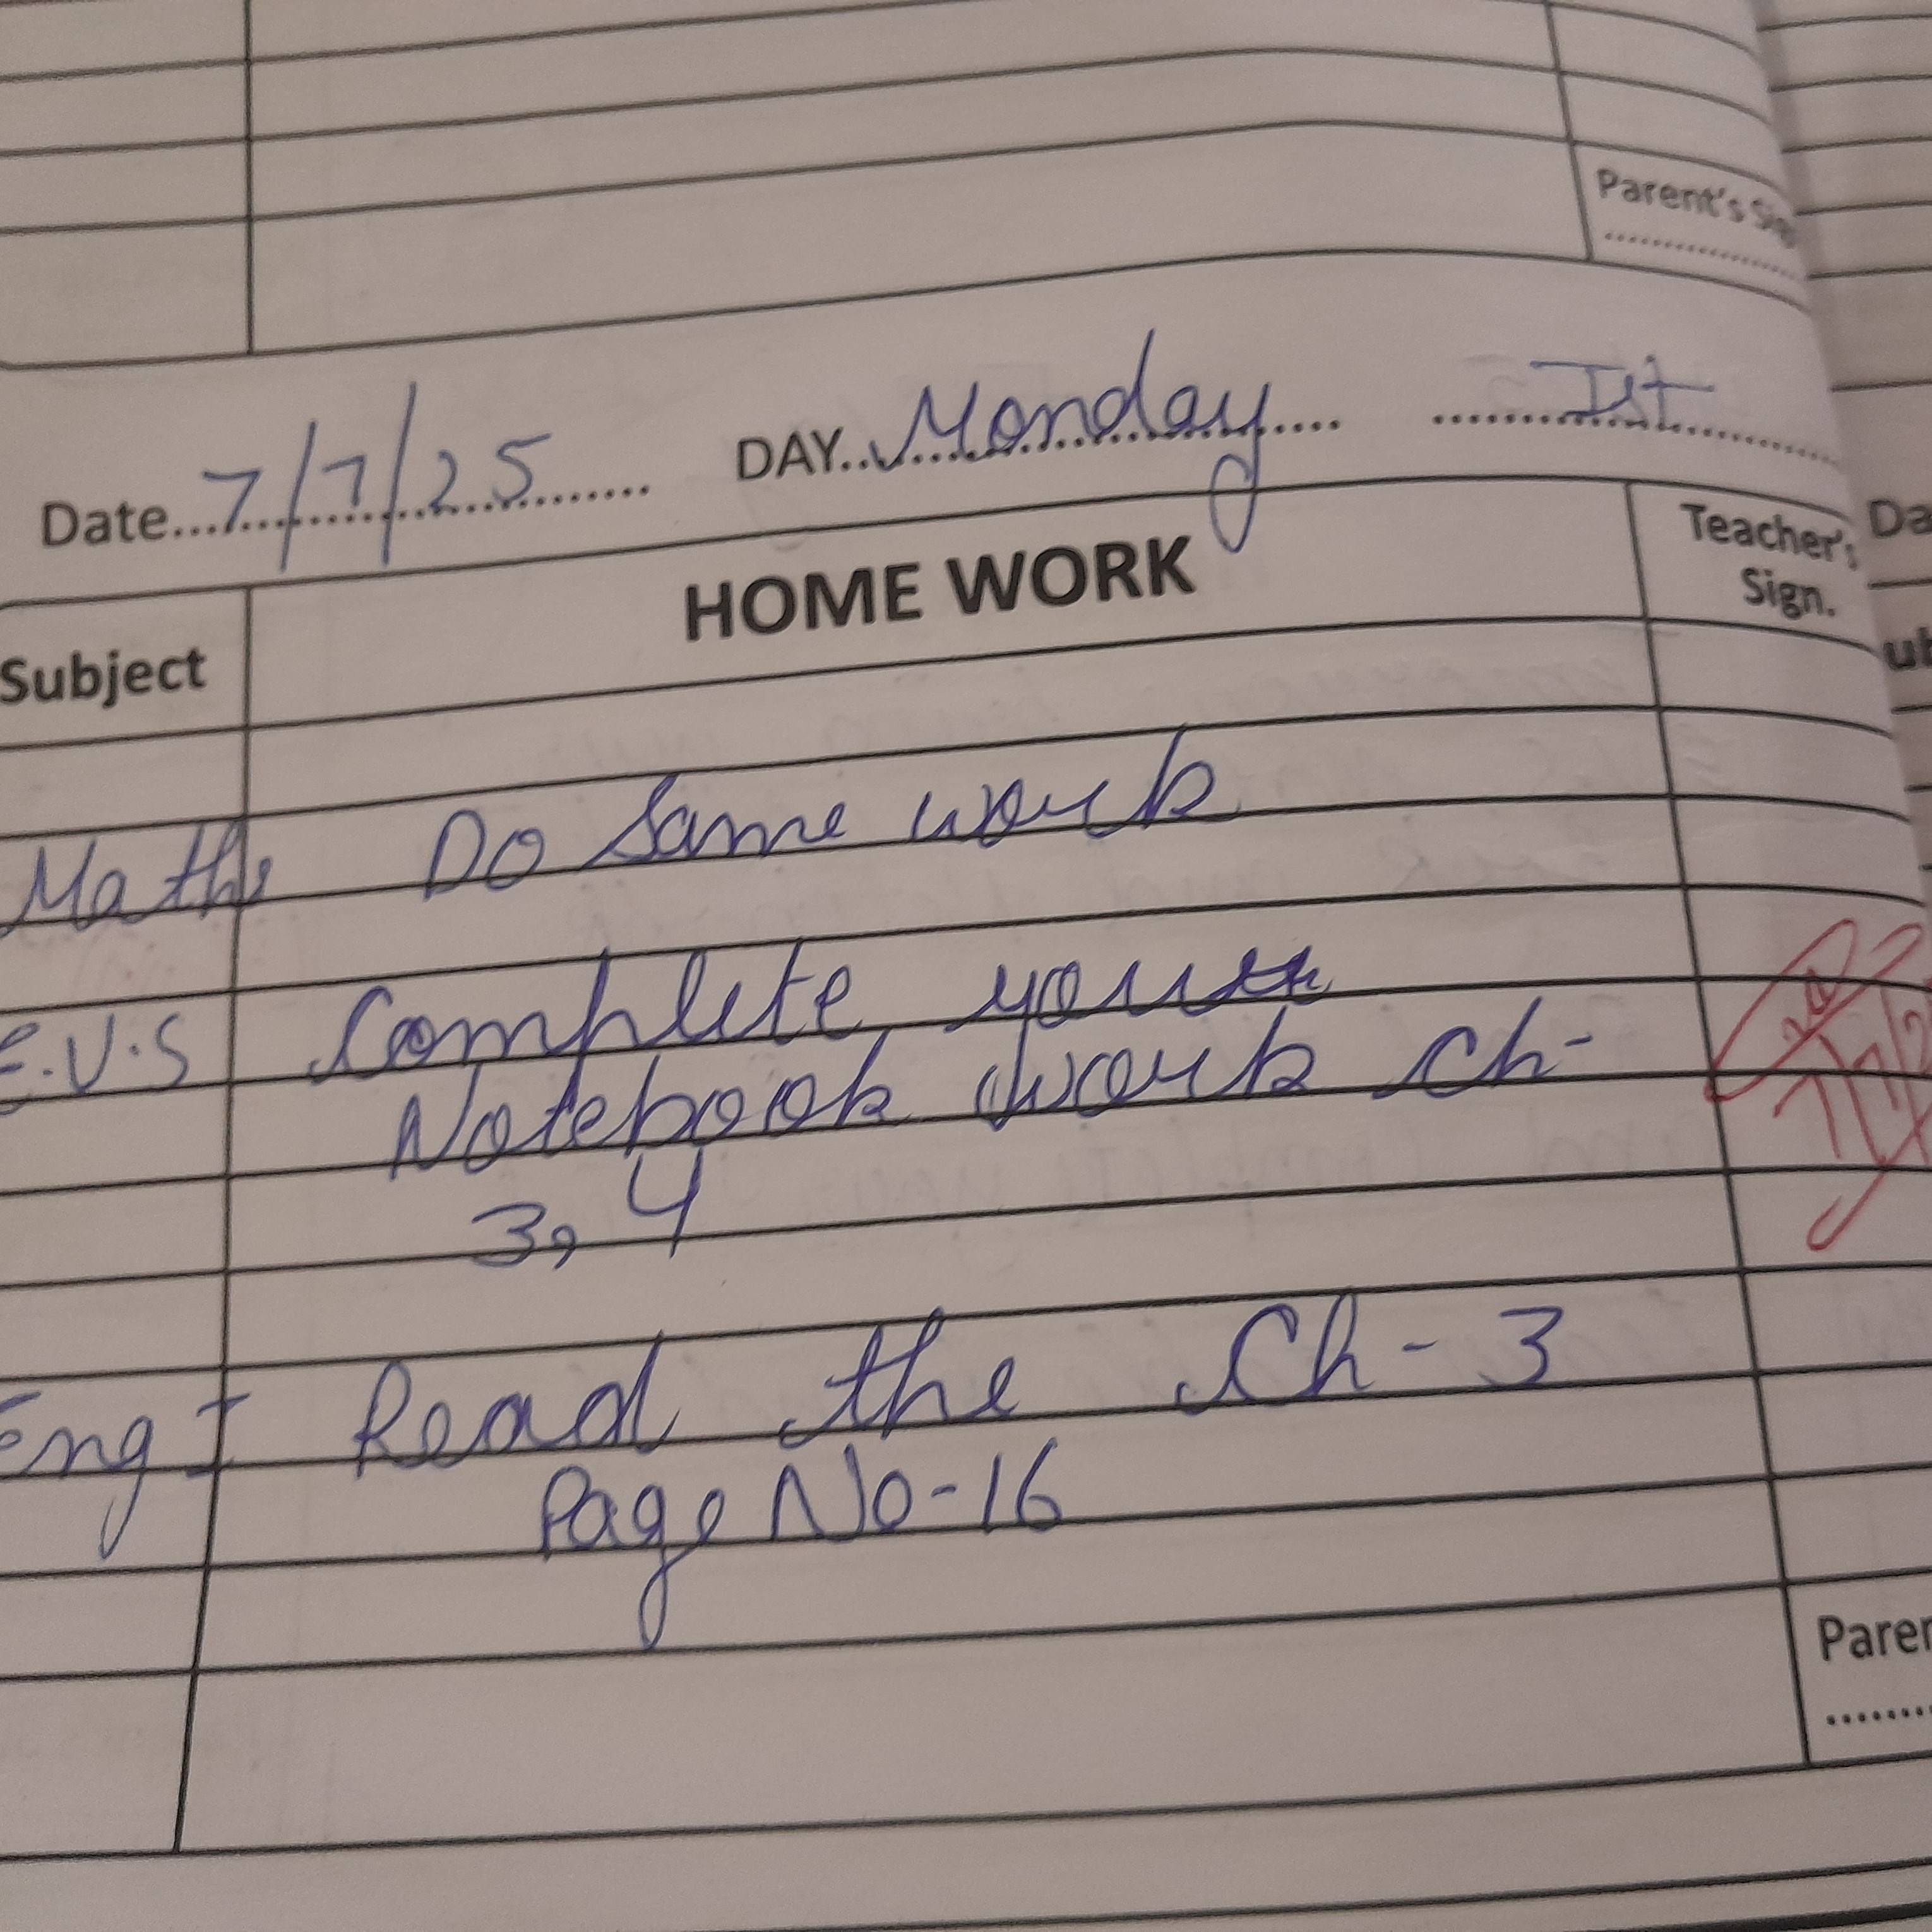 Parent's Sign
Date 7/7/25 DAY Monday Ist
Subject HOME WORK Teacher's Sign.
Maths Do Same work
E.V.S Complete your
Notebook work Ch-
3, 4
Eng I Read the Ch-3
Page No-16